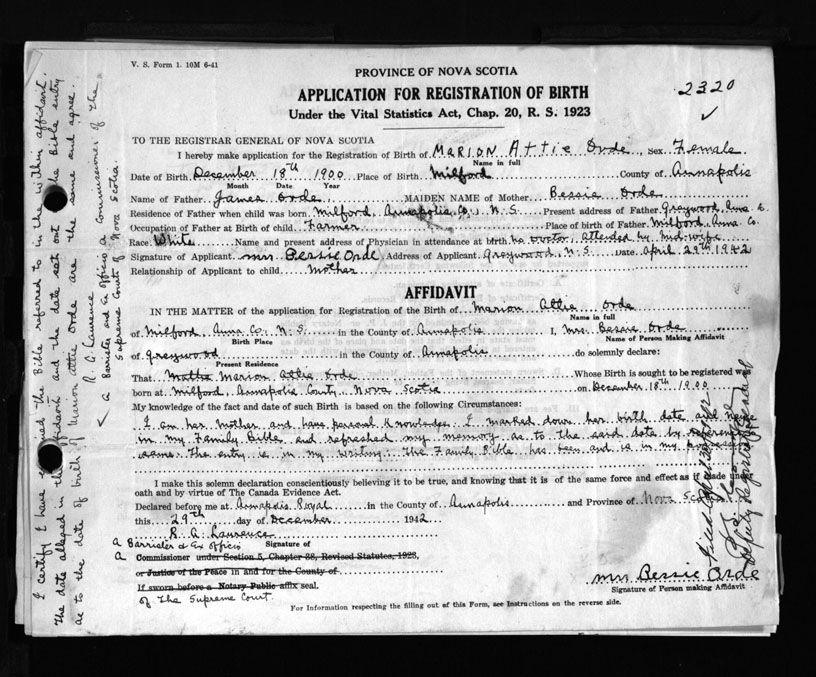 V. S. Form 1. 10M 6-41
PROVINCE OF NOVA SCOTIA
2320
APPLICATION FOR REGISTRATION OF BIRTH
Under the Vital Statistics Act, Chap. 20, R. S. 1923
TO THE REGISTRAR GENERAL OF NOVA SCOTIA
I hereby make application for the Registration of Birth of Marion Attie Orde, Sex Female
Name in full
Date of Birth December 18th 1900 Place of Birth Milford County of Annapolis
Month Date Year
Name of Father James Orde MAIDEN NAME of Mother Bessie Orde
Residence of Father when child was born Milford, Annapolis Co., N. S. Present address of Father Greywood, Anna Co.
Occupation of Father at Birth of child Farmer Place of birth of Father Milford, Anna. Co.
Race White Name and present address of Physician in attendance at birth no doctor, attended by mid-wife
Signature of Applicant Mrs Bessie Orde Address of Applicant Greywood, N. S. Date April 29th 1942
Relationship of Applicant to child Mother
AFFIDAVIT
IN THE MATTER of the application for Registration of the Birth of Marion Attie Orde
Name in full
of Milford Anna Co. N. S. in the County of Annapolis I, Mrs. Bessie Orde
Birth Place Name of Person Making Affidavit
of Greywood in the County of Annapolis do solemnly declare:
Present Residence
That Marion Attie Orde Whose Birth is sought to be registered was
born at Milford, Annapolis County, Nova Scotia on December 18th 1900
My knowledge of the fact and date of such Birth is based on the following Circumstances:
I am her mother and have personal knowledge. I marked down her birth date and name
in my Family Bible and refreshed my memory as to the said date by reference
same. The entry is in my writing. The Family Bible has been and is in my
I make this solemn declaration conscientiously believing it to be true, and knowing that it is of the same force and effect as if made under
oath and by virtue of The Canada Evidence Act.
Declared before me at Annapolis Royal in the County of Annapolis and Province of Nova Scotia
this 29th day of December 1942
R. A. Laurence
A Barrister & Ex Officio Signature of
A Commissioner under Section 5, Chapter 38, Revised Statutes, 1923,
or Justice of the Peace in and for the County of
If sworn before a Notary Public affix seal.
of The Supreme Court.
Mrs Bessie Orde
Signature of Person making Affidavit
For Information respecting the filling out of this Form, see Instructions on the reverse side.
I certify I have the Bible referred to in the within affidavit.
The date alleged in the affidavit and the date set out in the Bible entry
as to the date of birth of Marion Attie Orde are the same and agree.
R. A. Laurence
A Barrister and Ex Officio a Commissioner of The
Supreme Court of Nova Scotia.